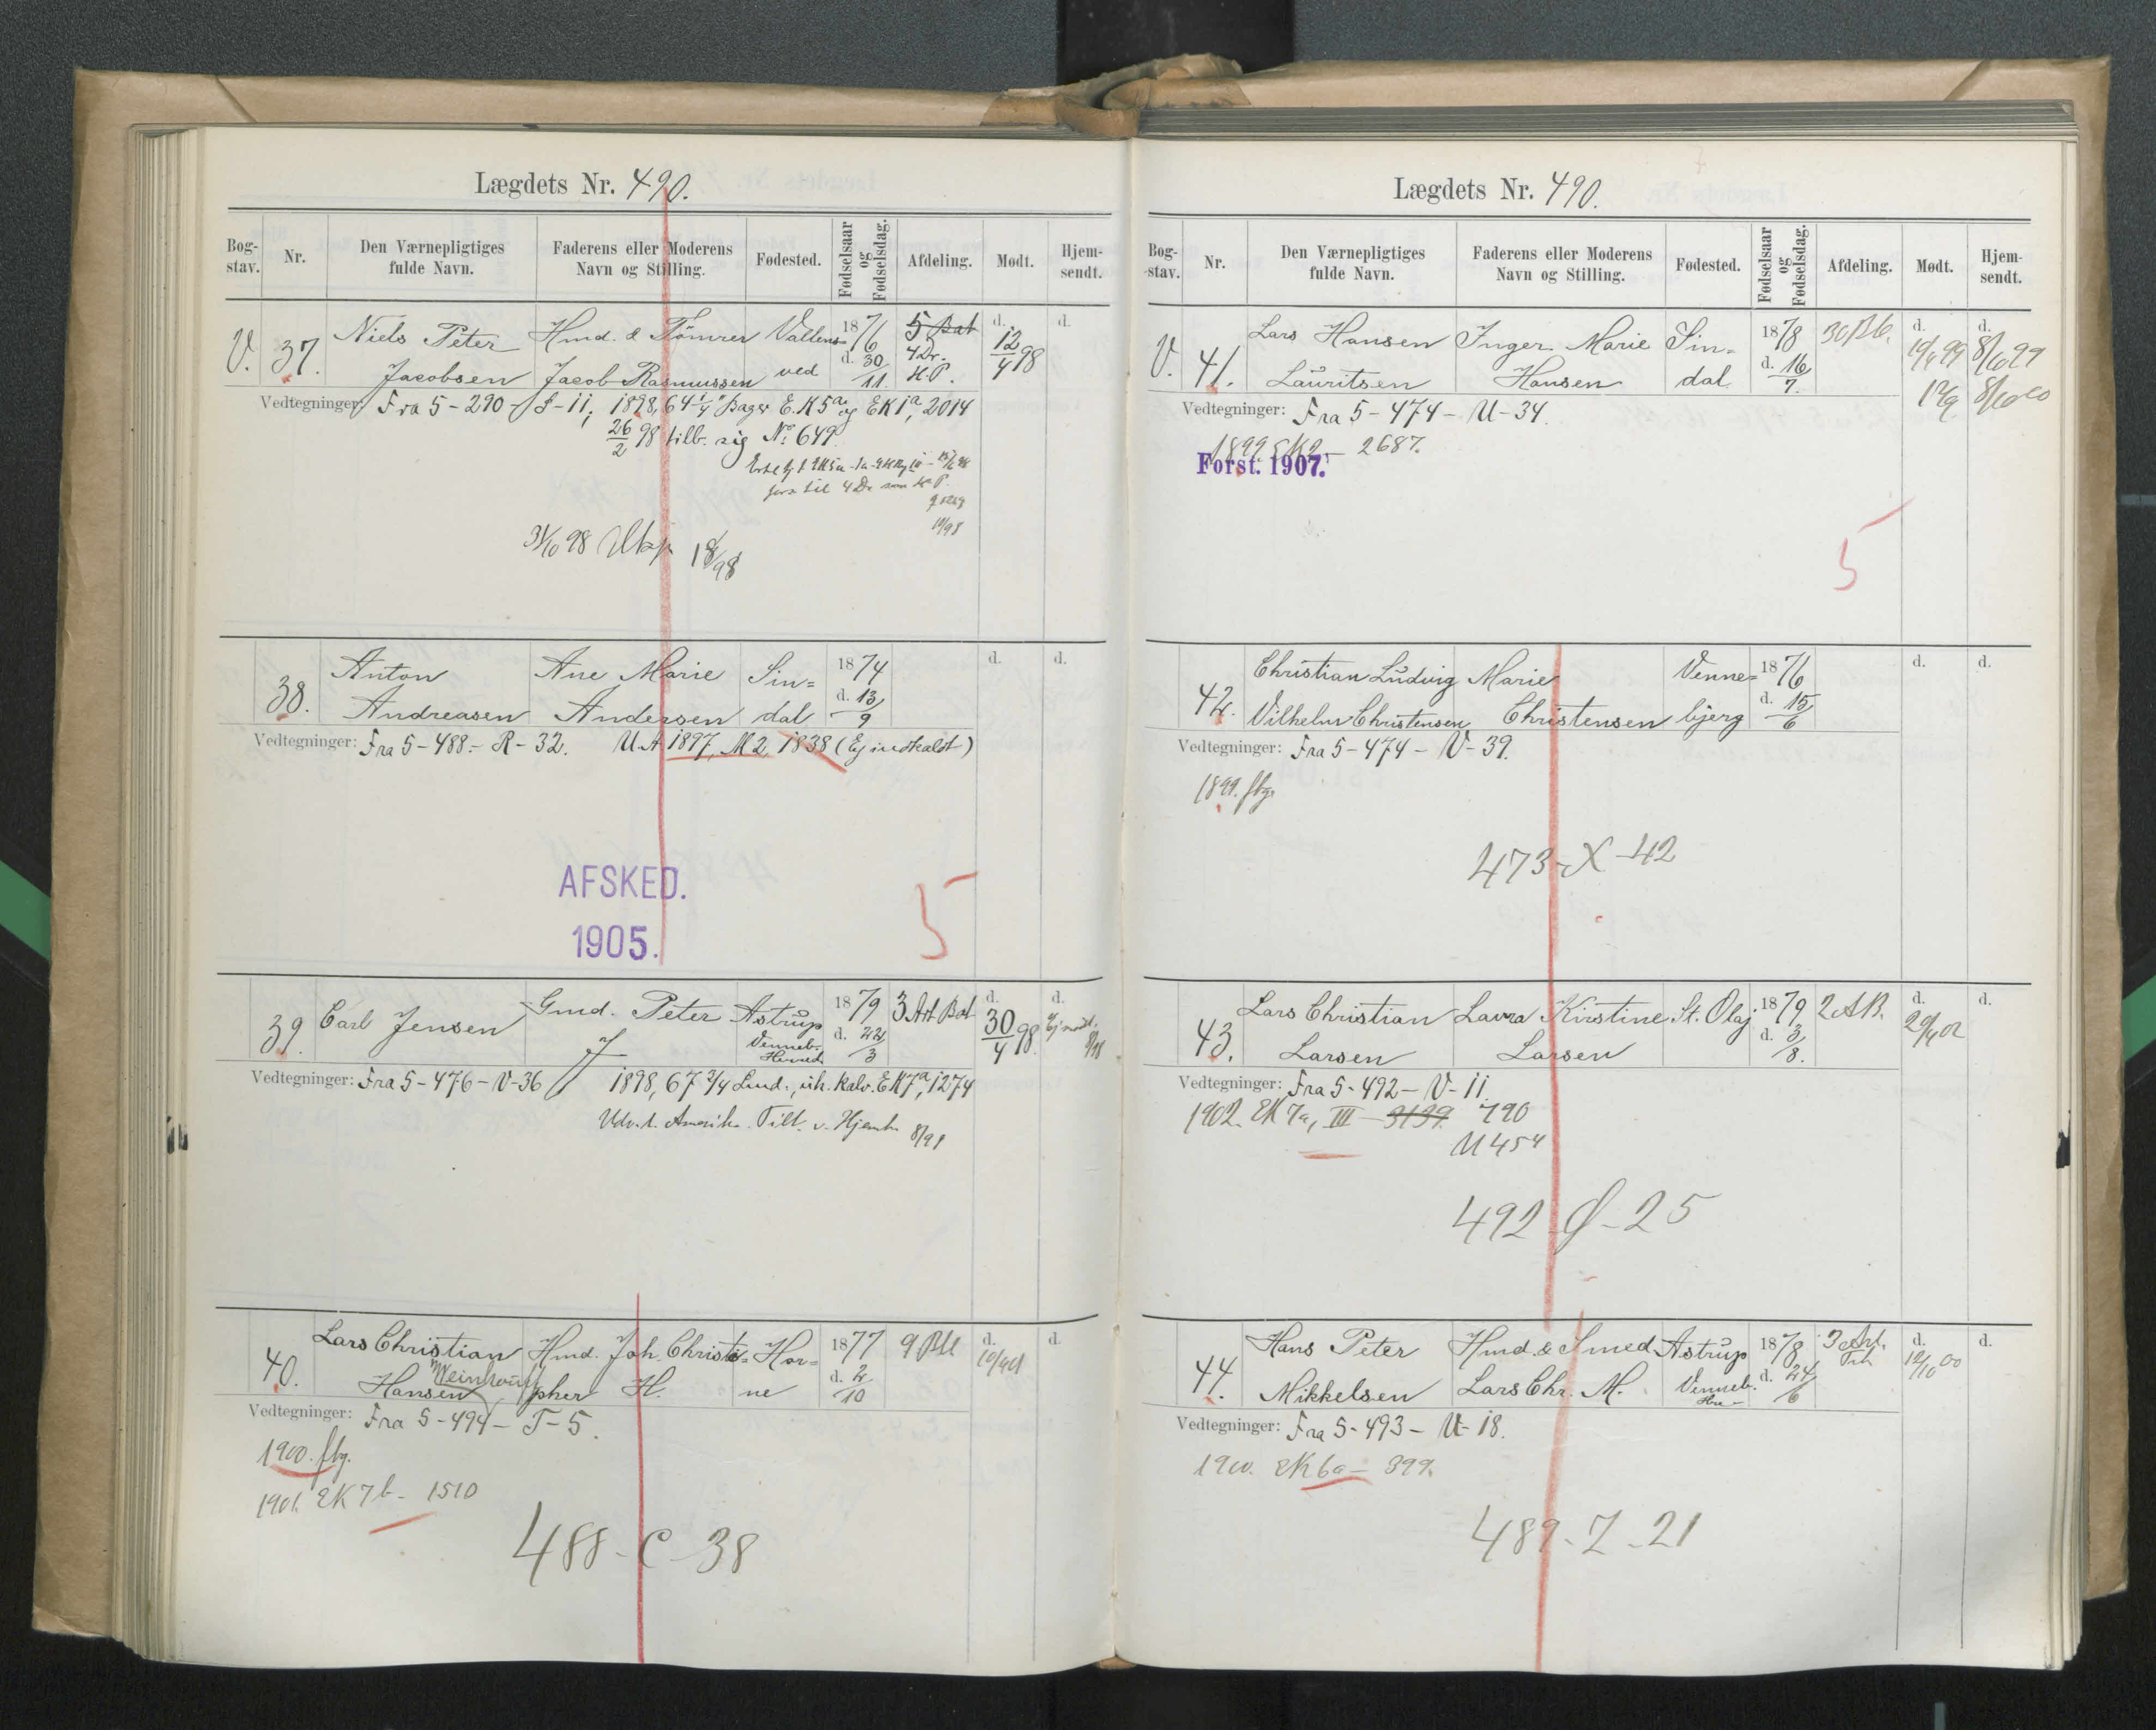 Lægdets Nr. 490.
Bog-
stav.
Nr.
Den Værnepligtiges
fulde Navn.
Faderens eller Moderens
Navn og Stilling.
Fødested.
Fødselsaar
og
Fødselsdag.
Afdeling.
Mødt.
Hjem-
sendt.
V. 37.
Niels Peter
Jacobsen
Hmd. & Tømrer
Jacob Rasmussen
Vallens-
ved
1876
d. 30/11.
5 Bat
4 Dr.
H.P.
d. 12/4 98
d.
Vedtegninger: Fra 5-290-S-11, 1898, 64 1/4" Bager E.K 5a og EK 1a, 2014
26/2 98 tilb. sig No 649.
til 4 Dr som H.P.
31/10 98
38.
Anton
Andreasen
Ane Marie
Andersen
Sin=
dal
1874
d. 13/9
d.
d.
Vedtegninger: Fra 5-488.- R-32. U.A 1897, M 2, 1838 (Ej indkaldt)
AFSKED.
1905.
5
39.
Carl Jensen
Gmd. Peter
J
Astrup
Venneb.
Herred
1879
d. 22/3
3 Art Bat
d. 30/4 98
d.
Vedtegninger: Fra 5-476-V-36 1898, 67 3/4 Lmd., uh. Kalv. E K 7a, 1274
Udv. t. Amerika. Till. v. Hjemk. 8/98
40.
Lars Christian
Hansen
Hmd. Joh. Christo=
pher H.
Hor=
ne
1877
d. 2/10
9 Btl
d.
d.
Vedtegninger: Fra 5-494- T-5.
1900. fbg.
1901. EK 7 b- 1510
488-C-38
Lægdets Nr. 490.
Bog-
stav.
Nr.
Den Værnepligtiges
fulde Navn.
Faderens eller Moderens
Navn og Stilling.
Fødested.
Fødselsaar
og
Fødselsdag.
Afdeling.
Mødt.
Hjem-
sendt.
V. 41.
Lars Hansen
Lauritsen
Inger Marie
Hansen
Sin=
dal
1878
d. 16/7.
30 Btl.
d.
d. 8/10 99
Vedtegninger: Fra 5-474- U-34.
1899 2687.
Forst. 1907.
5
42.
Christian Ludvig
Vilhelm Christensen
Marie
Christensen
Venne=
bjerg
1876
d. 15/6
d.
d.
Vedtegninger: Fra 5-474- V-39.
1899. fbg.
473-X-42
43.
Lars Christian
Larsen
Laura Kirstine
Larsen
St. Olaj
1879
d. 3/8.
2 A.B.
d.
d.
Vedtegninger: Fra 5-492- V-11.
1902. EK 7a, III - 3139. 790
U 454
492-Ø-25
44.
Hans Peter
Mikkelsen
Hmd. & Smed
Lars Chr. M.
Astrup
Venneb.
1878
d. 24/6
3 Art.
d. 12/10 00
d.
Vedtegninger: Fra 5-493- U-18.
1900. EK 6a- 399.
489-Z-21